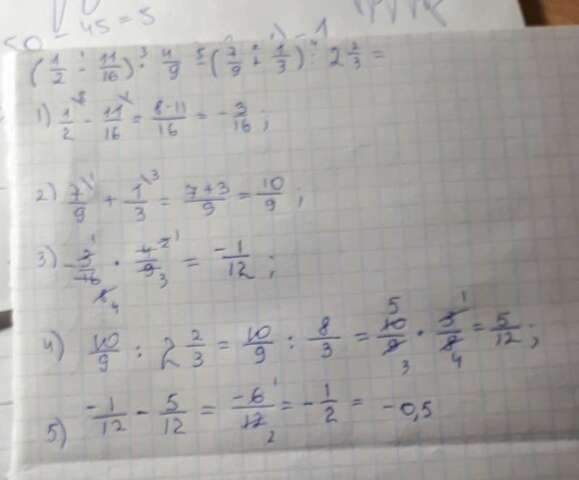 50 - 45 = 5
(1/2 - 11/16) · 4/9 - (7/9 + 1/3) : 2 2/3 =
1) 1/2 - 11/16 = 8-11/16 = -3/16 ;
2) 7/9 + 1/3 = 7+3/9 = 10/9 ;
3) -3/16 · 4/9 = -1/12 ;
4) 10/9 : 2 2/3 = 10/9 : 8/3 = 10/9 · 3/8 = 5/12 ;
5) -1/12 - 5/12 = -6/12 = -1/2 = -0,5